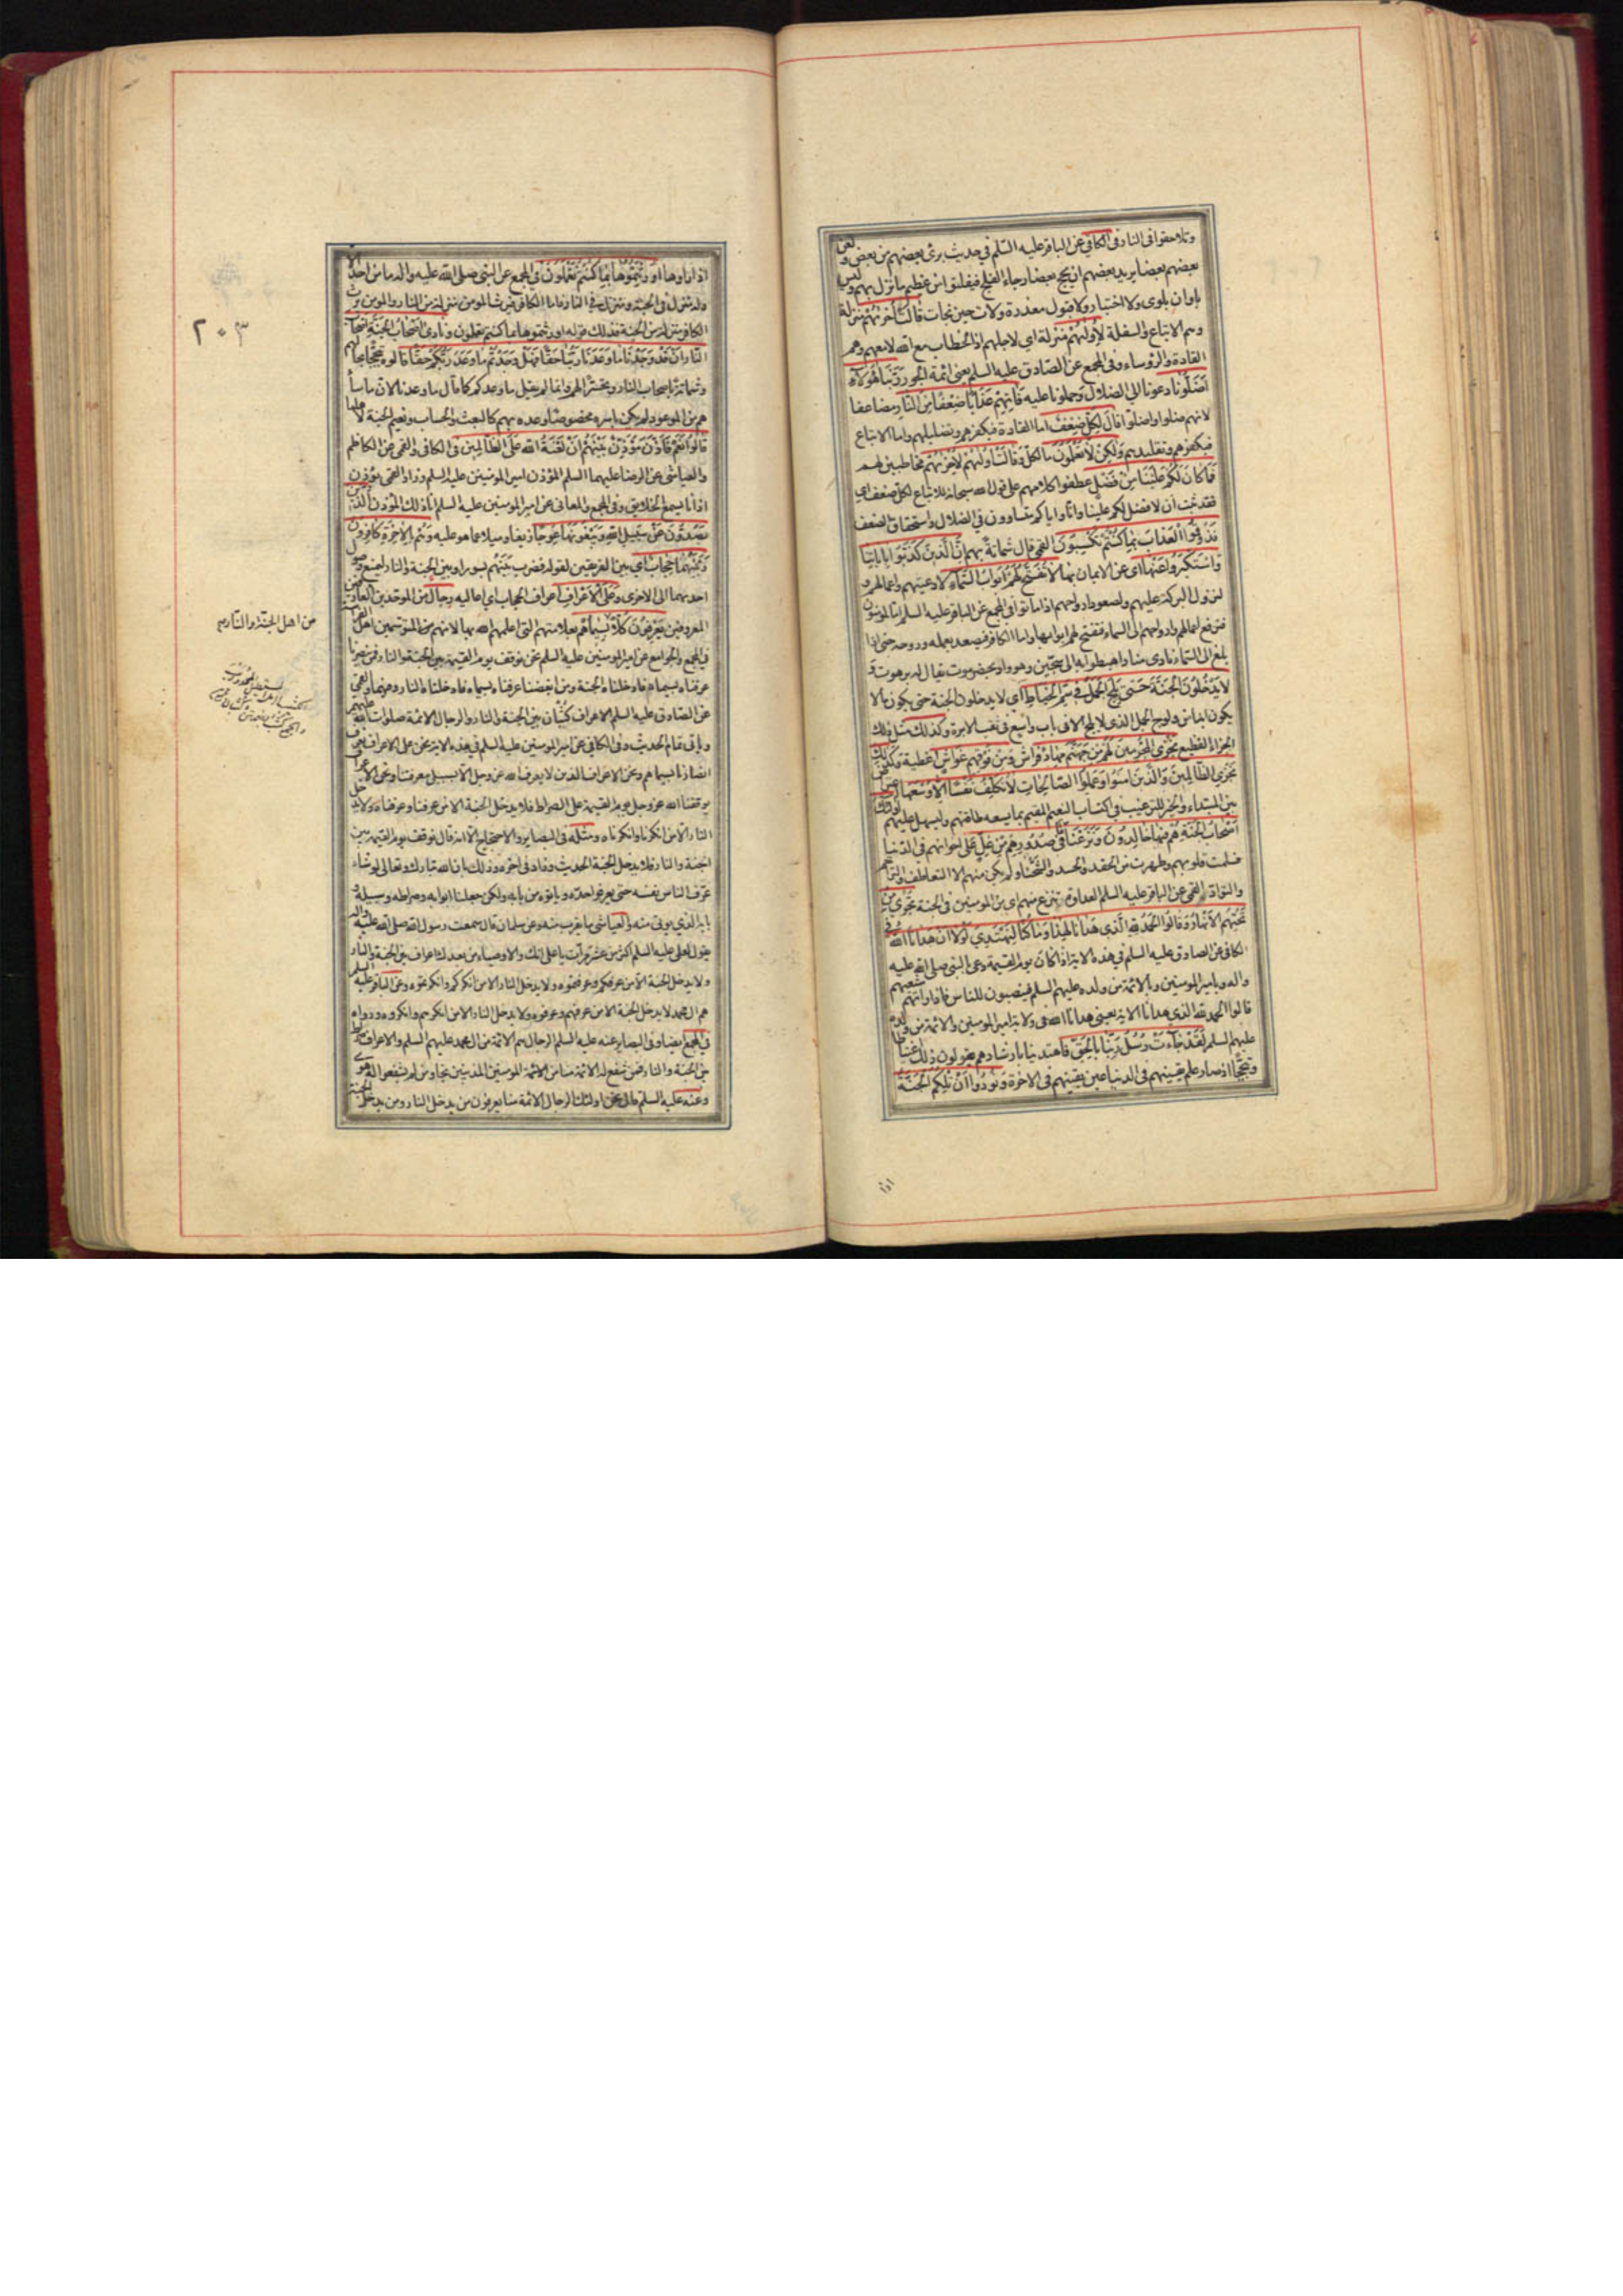 وتلاحقوا فى النار فى الكافى عن الباقر عليه السلم فى حديث برئ بعضهم من بعض ولعن
بعضهم بعضا يريد بعضهم ان يحج بعضا رجاء الفلج فيفلتوا من عظيم ما نزل بهم وليس
باوان بلوى ولا اختبار ولا قبول معذرة ولات حين نجات قَالَتْ أُخْرٰهُمْ منزلة
وهم الاتباع والسفلة لِأُولٰهُمْ منزلة اى لاجلهم اذ الخطاب مع الله لا معهم وهم
القادة والرؤساء وفى المجمع عن الصادق عليه السلم يعنى ائمة الجور رَبَّنَا هٰؤُلَاءِ
أَضَلُّونَا دعونا الى الضلال وحملونا عليه فَآتِهِمْ عَذَابًا ضِعْفًا مِنَ النَّارِ مضاعفا
لانهم ضلوا واضلوا قَالَ لِكُلٍّ ضِعْفٌ اما القادة فبكفرهم وتضليلهم واما الاتباع
فبكفرهم وتقليدهم وَلٰكِنْ لَا تَعْلَمُونَ ما لكل وَقَالَتْ أُولٰهُمْ لِأُخْرٰهُمْ مخاطبين لهم
فَمَا كَانَ لَكُمْ عَلَيْنَا مِنْ فَضْلٍ عطفوا كلامهم على قول الله سبحانه للاتباع لكل ضعف اى
فقد ثبت ان لا فضل لكم علينا وانا واياكم متساوون فى الضلال واستحقاق الضعف
فَذُوقُوا الْعَذَابَ بِمَا كُنْتُمْ تَكْسِبُونَ القمى قال شماتة بهم إِنَّ الَّذِينَ كَذَّبُوا بِآيَاتِنَا
وَاسْتَكْبَرُوا عَنْهَا اى عن الايمان بها لَا تُفَتَّحُ لَهُمْ أَبْوَابُ السَّمَاءِ لادعيتهم واعمالهم و
لنزول البركة عليهم ولصعود ارواحهم اذا ماتوا فى المجمع عن الباقر عليه السلم اما المومنون
فترفع اعمالهم وارواحهم الى السماء فتفتح لهم ابوابها واما الكافر فيصعد بعمله وروحه حتى اذا
بلغ الى السماء نادى مناد اهبطوا به الى سجين وهو واد بحضرموت يقال له برهوت وَ
لَا يَدْخُلُونَ الْجَنَّةَ حَتّٰى يَلِجَ الْجَمَلُ فِي سَمِّ الْخِيَاطِ اى لا يدخلون الجنة حتى يكون ما لا
يكون ابدا من ولوج الجمل الذى لا يلج الا فى باب واسع فى ثقب الابرة وَكَذٰلِكَ مثل ذلك
الجزاء الفظيع نَجْزِي الْمُجْرِمِينَ لَهُمْ مِنْ جَهَنَّمَ مِهَادٌ فراش وَمِنْ فَوْقِهِمْ غَوَاشٍ اغطية وَكَذٰلِكَ
نَجْزِي الظَّالِمِينَ وَالَّذِينَ آمَنُوا وَعَمِلُوا الصَّالِحَاتِ لَا نُكَلِّفُ نَفْسًا إِلَّا وُسْعَهَا اعتراض
بين المبتداء والخبر للترغيب فى اكتساب النعيم المقيم بما يسعه طاقتهم ويسهل عليهم أُولٰئِكَ
أَصْحَابُ الْجَنَّةِ هُمْ فِيهَا خَالِدُونَ وَنَزَعْنَا مَا فِي صُدُورِهِمْ مِنْ غِلٍّ على اخوانهم فى الدنيا
فسلمت قلوبهم وطهرت من الحقد والحسد والشحناء ولم يكن منهم الا التعاطف والتراحم
والتواد القمى عن الباقر عليه السلم العداوة تنزع منهم اى من المومنين فى الجنة تَجْرِي مِنْ
تَحْتِهِمُ الْأَنْهَارُ وَقَالُوا الْحَمْدُ لِلّٰهِ الَّذِي هَدَانَا لِهٰذَا وَمَا كُنَّا لِنَهْتَدِيَ لَوْلَا أَنْ هَدَانَا اللّٰهُ فى
الكافى عن الصادق عليه السلم فى هذه الاية اذا كان يوم القيمة دعى بالنبى صلى الله عليه
واله وبامير المومنين وبالائمة من ولده عليهم السلم فينصبون للناس فاذا راتهم شيعتهم
قالوا الحمد لله الذى هدانا الاية يعنى هدانا الله فى ولاية امير المومنين والائمة من ولده
عليهم السلم لَقَدْ جَاءَتْ رُسُلُ رَبِّنَا بِالْحَقِّ فاهتدينا بارشادهم يقولون ذلك اغتباطا
وتبجحا اذ صار علم يقينهم فى الدنيا عين يقينهم فى الاخرة وَنُودُوا أَنْ تِلْكُمُ الْجَنَّةُ
اذا راوها أُورِثْتُمُوهَا بِمَا كُنْتُمْ تَعْمَلُونَ فى المجمع عن النبى صلى الله عليه واله ما من احد الا
وله منزل فى الجنة ومنزل فى النار فاما الكافر فيرث المومن منزله من النار والمومن يرث
الكافر منزله من الجنة فذلك قوله اورثتموها بما كنتم تعملون وَنَادٰى أَصْحَابُ الْجَنَّةِ أَصْحَابَ
النَّارِ أَنْ قَدْ وَجَدْنَا مَا وَعَدَنَا رَبُّنَا حَقًّا فَهَلْ وَجَدْتُمْ مَا وَعَدَ رَبُّكُمْ حَقًّا قالوه تبجحا بحالهم
وشماتة باصحاب النار وتحسيرا لهم وانما لم يقل ما وعدكم كما قال ما وعدنا لان ما ساءهم
من الموعود لم يكن باسره مخصوصا وعده بهم كالبعث والحساب ونعيم الجنة لاهلها
قَالُوا نَعَمْ فَأَذَّنَ مُؤَذِّنٌ بَيْنَهُمْ أَنْ لَعْنَةُ اللّٰهِ عَلَى الظَّالِمِينَ فى الكافى والقمى عن الكاظم
والعياشى عن الرضا عليهما السلم المؤذن امير المومنين عليه السلم وزاد القمى يؤذن
اذانا يسمع الخلايق وفى المجمع والمعانى عن امير المومنين عليه السلم انا ذلك المؤذن الَّذِينَ
يَصُدُّونَ عَنْ سَبِيلِ اللّٰهِ وَيَبْغُونَهَا عِوَجًا زيغا وميلا عما هو عليه وَهُمْ بِالْآخِرَةِ كَافِرُونَ
وَبَيْنَهُمَا حِجَابٌ اى بين الفريقين لقوله فضرب بينهم بسور او بين الجنة والنار ليمنع وصول
احديهما الى الاخرى وَعَلَى الْأَعْرَافِ اعراف الحجاب اى اعاليه رِجَالٌ من الموحدين العارفين
المعروفين يَعْرِفُونَ كُلًّا بِسِيمَاهُمْ بعلامتهم التى اعلمهم الله بها لانهم من المتوسمين اهل الفراسة
فى المجمع والجوامع عن امير المومنين عليه السلم نحن نوقف يوم القيمة بين الجنة والنار فمن نصرنا
عرفناه بسيماه فادخلناه الجنة ومن ابغضنا عرفناه بسيماه فادخلناه النار ومنهما والقمى
عن الصادق عليه السلم الاعراف كثبان بين الجنة والنار والرجال الائمة صلوات الله عليهم
وياتى تمام الحديث وفى الكافى عن امير المومنين عليه السلم فى هذه الاية نحن على الاعراف نعرف
انصارنا بسيماهم ونحن الاعراف الذين لا يعرف الله عز وجل الا بسبيل معرفتنا ونحن الاعراف
يوقفنا الله عز وجل يوم القيمة على الصراط فلا يدخل الجنة الا من عرفنا وعرفناه ولا يدخل
النار الا من انكرنا وانكرناه ومثله فى البصاير والاحتجاج الا انه قال نوقف يوم القيمة بين
الجنة والنار فلا يدخل الجنة الحديث وزاد فى اخره وذلك بان الله تبارك وتعالى لو شاء
عرف الناس نفسه حتى يعرفوا حده وياتوه من بابه ولكن جعلنا ابوابه وصراطه وسبيله و
بابه الذى يوتى منه والعياشى ما يقرب منه وعن سلمان قال سمعت رسول الله صلى الله عليه واله
يقول لعلى عليه السلم اكثر من عشر مرات يا على انك والاوصياء من بعدك اعراف بين الجنة والنار
ولا يدخل الجنة الا من عرفكم وعرفتموه ولا يدخل النار الا من انكركم وانكرتموه وعن الباقر عليه السلم
هم ال محمد لا يدخل الجنة الا من عرفهم وعرفوه ولا يدخل النار الا من انكرهم وانكروه ورواه
فى المجمع ايضا وفى البصاير عنه عليه السلم الرجال هم الائمة من ال محمد عليهم السلم والاعراف صراط
بين الجنة والنار فمن شفع له الائمة منا من الائمة المومنين المذنبين نجا ومن لم يشفعوا له هوى
وعنه عليه السلم قال نحن اولئك الرجال الائمة منا يعرفون من يدخل النار ومن يدخل الجنة
٢٠٣
من اهل الجنة والنار